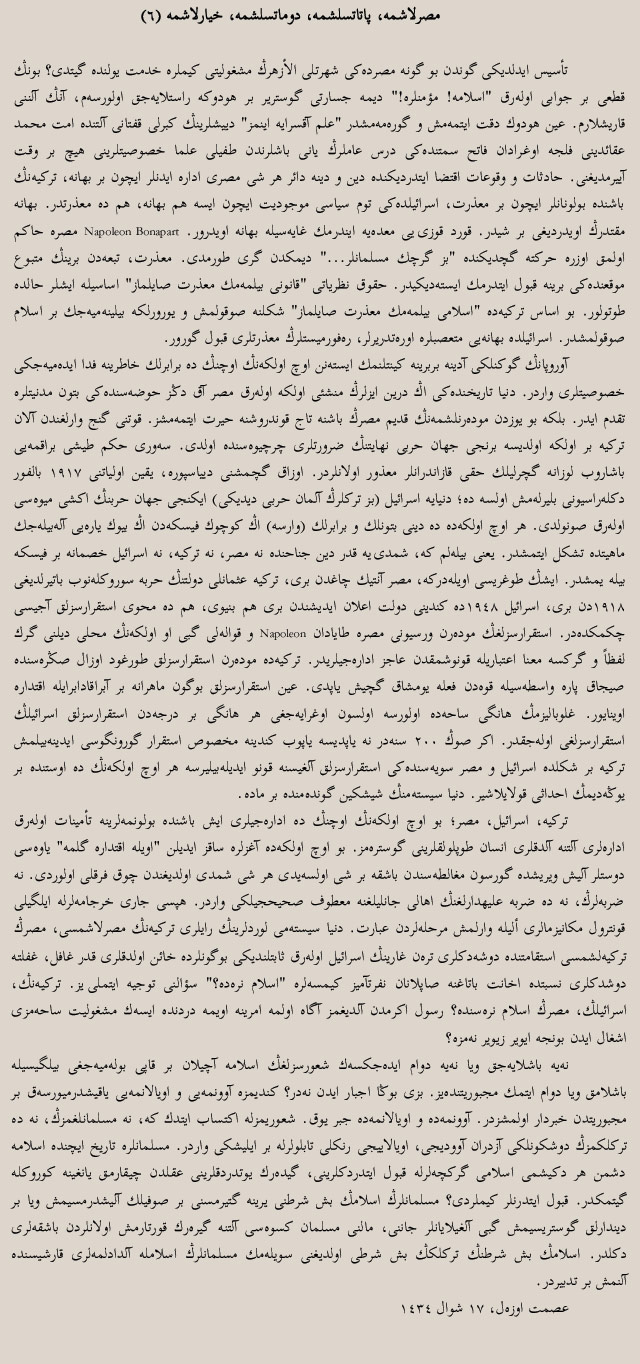 مصرلاشمه، پاتاتسلشمه، دوماتسلشمه، خيارلاشمه (٦)
تأسيس ايدلديكى گوندن بو گونه مصرده‌كى شهرتلى الأزهرڭ مشغوليتى كيملره خدمت يولنده گيتدى؟ بونڭ
قطعى بر جوابى اوله‌رق "اسلامه! مؤمنلره!" ديمه جسارتى گوسترير بر هودوكه راستلايه‌جق اولورسه‌م، آنڭ آلننى
قاريشلارم. عين هودوك دقت ايتمه‌مش و گوره‌مه‌مشدر "علم آقسرايه اينمز" دييشلرينڭ كبرلى قفتانى آلتنده امت محمد
عقائدينى فلجه اوغرادان فاتح سمتنده‌كى درس عاملرڭ يانى باشلرندن طفيلى علما خصوصيتلرينى هيچ بر وقت
آييرمديغنى. حادثات و وقوعات اقتضا ايتدرديكنده دين و دينه دائر هر شى مصرى اداره ايدنلر ايچون بر بهانه، تركيه‌نڭ
باشنده بولونانلر ايچون بر معذرت، اسرائيلده‌كى توم سياسى موجوديت ايچون ايسه هم بهانه، هم ده معذرتدر. بهانه
مقتدرڭ اويدرديغى بر شيدر. قورد قوزى‌يى معده‌يه ايندرمك غايه‌سيله بهانه اويدرور. Napoleon Bonapart مصره حاكم
اولمق اوزره حركته گچديكنده "بز گرچك مسلمانلر..." ديمكدن گرى طورمدى. معذرت، تبعه‌دن برينڭ متبوع
موقعنده‌كى برينه قبول ايتدرمك ايسته‌ديكيدر. حقوق نظرياتى "قانونى بيلمه‌مك معذرت صايلماز" اساسيله ايشلر حالده
طوتولور. بو اساس تركيه‌ده "اسلامى بيلمه‌مك معذرت صايلماز" شكلنه صوقولمش و يورورلكه بيلينه‌ميه‌جك بر اسلام
صوقولمشدر. اسرائيلده بهانه‌يى متعصبلره اوره‌تديررلر، ره‌فورميستلرڭ معذرتلرى قبول گورور.
آوروپانڭ گوكنلكى آدينه بربرينه كينتلنمك ايسته‌نن اوچ اولكه‌نڭ اوچنڭ ده برابرلك خاطرينه فدا ايده‌ميه‌جكى
خصوصيتلرى واردر. دنيا تاريخنده‌كى اڭ درين ايزلرڭ منشئى اولكه اوله‌رق مصر آق دڭز حوضه‌سنده‌كى بتون مدنيتلره
تقدم ايدر. بلكه بو يوزدن موده‌رنلشمه‌نڭ قديم مصرڭ باشنه تاج قوندروشنه حيرت ايتمه‌مشز. قوتنى گنج وارلغندن آلان
تركيه بر اولكه اولديسه برنجى جهان حربى نهايتنڭ ضرورتلرى چرچيوه‌سنده اولدى. سه‌ورى حكم طيشى براقمه‌يى
باشاروب لوزانه گچرليلك حقى قازاندرانلر معذور اولانلردر. اوزاق گچمشنى دياسپوره، يقين اولياتنى ١٩١٧ بالفور
دكله‌راسيونى بليرله‌مش اولسه ده؛ دنيايه اسرائيل (بز تركلرڭ آلمان حربى ديديكى) ايكنجى جهان حربنڭ اكشى ميوه‌سى
اوله‌رق صونولدى. هر اوچ اولكه‌ده ده دينى بتونلك و برابرلك (وارسه) اڭ كوچوك فيسكه‌دن اڭ بيوك ياره‌يى آله‌بيله‌جك
ماهيتده تشكل ايتمشدر. يعنى بيله‌لم كه، شمدى‌يه قدر دين جناحنده نه مصر، نه تركيه، نه اسرائيل خصمانه بر فيسكه
بيله يمشدر. ايشڭ طوغريسى اويله‌دركه، مصر آنتيك چاغدن برى، تركيه عثمانلى دولتنڭ حربه سوروكله‌نوب باتيرلديغى
١٩١٨دن برى، اسرائيل ١٩٤٨ده كندينى دولت اعلان ايديشندن برى هم بنيوى، هم ده محوى استقرارسزلق آجيسى
چكمكده‌در. استقرارسزلغڭ موده‌رن ورسيونى مصره طايادان Napoleon و قواله‌لى گبى او اولكه‌نڭ محلى ديلنى گرك
لفظاً و گركسه معنا اعتباريله قونوشمقدن عاجز اداره‌جيلريدر. تركيه‌ده موده‌رن استقرارسزلق طورغود اوزال صڭره‌سنده
صيجاق پاره واسطه‌سيله قوه‌دن فعله يومشاق گچيش ياپدى. عين استقرارسزلق بوگون ماهرانه بر آبراقادابرايله اقتداره
اويناييور. غلوباليزمڭ هانگى ساحه‌ده اولورسه اولسون اوغرايه‌جغى هر هانگى بر درجه‌دن استقرارسزلق اسرائيلڭ
استقرارسزلغى اوله‌جقدر. اكر صوڭ ٢٠٠ سنه‌در نه ياپديسه ياپوب كندينه مخصوص استقرار گورونگوسى ايدينه‌بيلمش
تركيه بر شكلده اسرائيل و مصر سويه‌سنده‌كى استقرارسزلق آلغيسنه قونو ايديله‌بيليرسه هر اوچ اولكه‌نڭ ده اوستنده بر
يوڭه‌ديمڭ احداثى قولايلاشير. دنيا سيسته‌منڭ شيشكين گونده‌منده بر ماده.
تركيه، اسرائيل، مصر؛ بو اوچ اولكه‌نڭ اوچنڭ ده اداره‌جيلرى ايش باشنده بولونمه‌لرينه تأمينات اوله‌رق
اداره‌لرى آلتنه آلدقلرى انسان طوپلولقلرينى گوسترەمز. بو اوچ اولكه‌ده آغزلره ساقز ايديلن "اويله اقتداره گلمه" ياوه‌سى
دوستلر آليش ويريشده گورسون مغالطه‌سندن باشقه بر شى اولسه‌يدى هر شى شمدى اولديغندن چوق فرقلى اولوردى. نه
ضربه‌لرڭ، نه ده ضربه عليهدارلغنڭ اهالى جانليلغنه معطوف صحيحجيلكى واردر. هپسى جارى خرجامه‌لرله ايلگيلى
قونترول مكانيزمالرى أليله وارلمش مرحله‌لردن عبارت. دنيا سيسته‌مى لوردلرينڭ رايلرى تركيه‌نڭ مصرلاشمسى، مصرڭ
تركيه‌لشمسى استقامتنده دوشه‌دكلرى ترەن غارينڭ اسرائيل اوله‌رق ثابتلنديكى بوگونلرده خائن اولدقلرى قدر غافل، غفلته
دوشدكلرى نسبتده اخانت باتاغنه صاپلانان نفرتآميز كيمسه‌لره "اسلام نره‌ده؟" سؤالنى توجيه ايتملى يز. تركيه‌نڭ،
اسرائيلڭ، مصرڭ اسلام نره‌سنده؟ رسول اكرمدن آلديغمز آگاه اولمه امرينه اويمه دردنده ايسه‌ك مشغوليت ساحه‌مزى
اشغال ايدن بونجه ايوير زيوير نه‌مزه؟
نه‌يه باشلايه‌جق ويا نه‌يه دوام ايده‌جكسه‌ك شعورسزلغڭ اسلامه آچيلان بر قاپى بوله‌ميه‌جغى بيلگيسيله
باشلامق ويا دوام ايتمك مجبوريتنده‌يز. بزى بوڭا اجبار ايدن نه‌در؟ كنديمزه آوونمه‌يى و اويالانمه‌يى ياقيشدرميورسه‌ق بر
مجبوريتدن خبردار اولمشزدر. آوونمه‌ده و اويالانمه‌ده جبر يوق. شعوريمزله اكتساب ايتدك كه، نه مسلمانلغمزڭ، نه ده
تركلكمزڭ دوشكونلكى آزدران آووديجى، اويالاييجى رنكلى تابلولرله بر ايليشكى واردر. مسلمانلره تاريخ ايچنده اسلامه
دشمن هر دكيشمى اسلامى گركچه‌لرله قبول ايتدردكلرينى، گيده‌رك يوتدردقلرينى عقلدن چيقارمق يانغينه كوروكله
گيتمكدر. قبول ايتدرنلر كيملردى؟ مسلمانلرڭ اسلامڭ بش شرطنى يرينه گتيرمسنى بر صوفيلك آليشدرمسيمش ويا بر
ديندارلق گوستريسيمش گبى آلغيلايانلر جاننى، مالنى مسلمان كسوه‌سى آلتنه گيره‌رك قورتارمش اولانلردن باشقه‌لرى
دكلدر. اسلامڭ بش شرطنڭ تركلكڭ بش شرطى اولديغنى سويله‌مك مسلمانلرڭ اسلامله آلدادلمه‌لرى قارشيسنده
آلنمش بر تدبيردر.
عصمت اوزه‌ل، ١٧ شوال ١٤٣٤